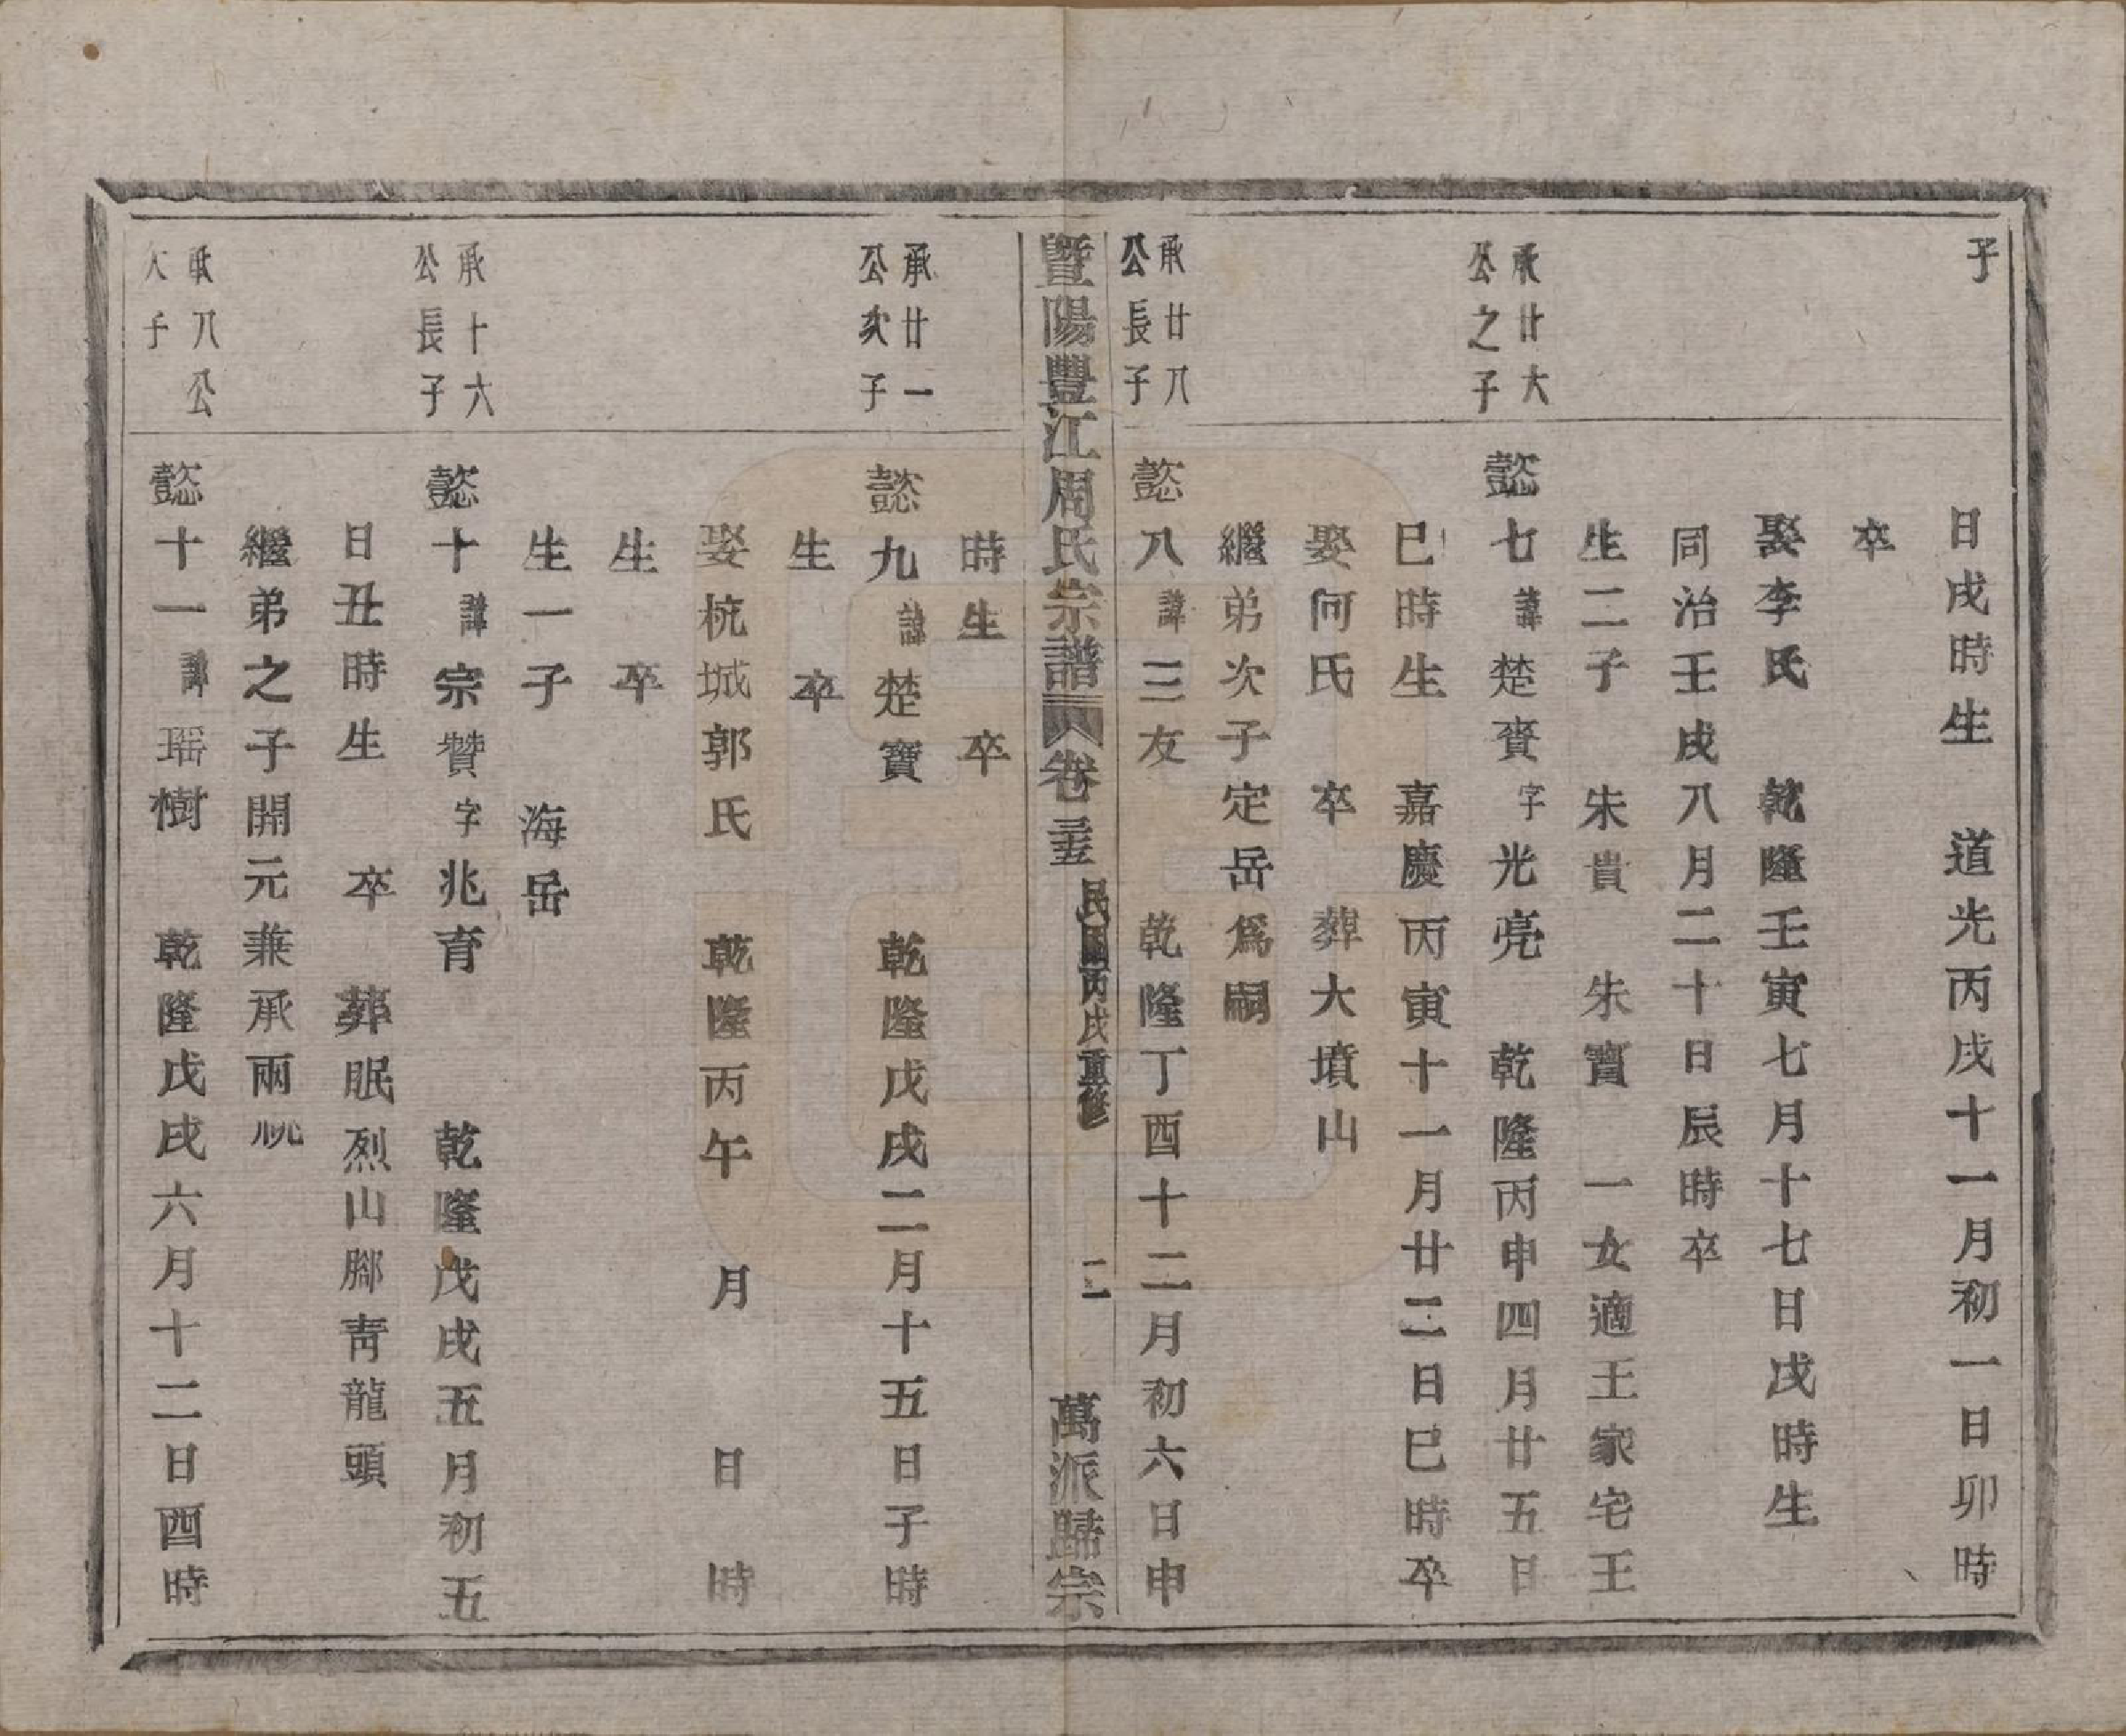 子
日戌時生　道光丙戌十一月初一日卯時
卒
娶李氏　乾隆壬寅七月十七日戌時生
同治壬戌八月二十日辰時卒
生二子　朱貴　朱寶　一女適王家宅王
承廿六
公之子
懿七諱楚賚字光亮　乾隆丙申四月廿五日
巳時生　嘉慶丙寅十一月廿二日巳時卒
娶何氏　卒　葬大墳山
繼弟次子定岳爲嗣
承廿八
公長子
懿八諱三友　乾隆丁酉十二月初六日申
暨陽豐江周氏宗譜　卷三五　民國丙戌重修　二　萬派歸宗
時生　卒
承廿一
公次子
懿九諱楚寶　乾隆戊戌二月十五日子時
生　卒
娶杭城郭氏　乾隆丙午　月　日　時
生　卒
生一子　海岳
承十六
公長子
懿十諱宗贊字兆育　乾隆戊戌五月初五
日丑時生　卒　葬眠烈山腳靑龍頭
繼弟之子開元兼承兩祧
承八公
子
懿十一諱瑶樹　乾隆戊戌六月十二日酉時